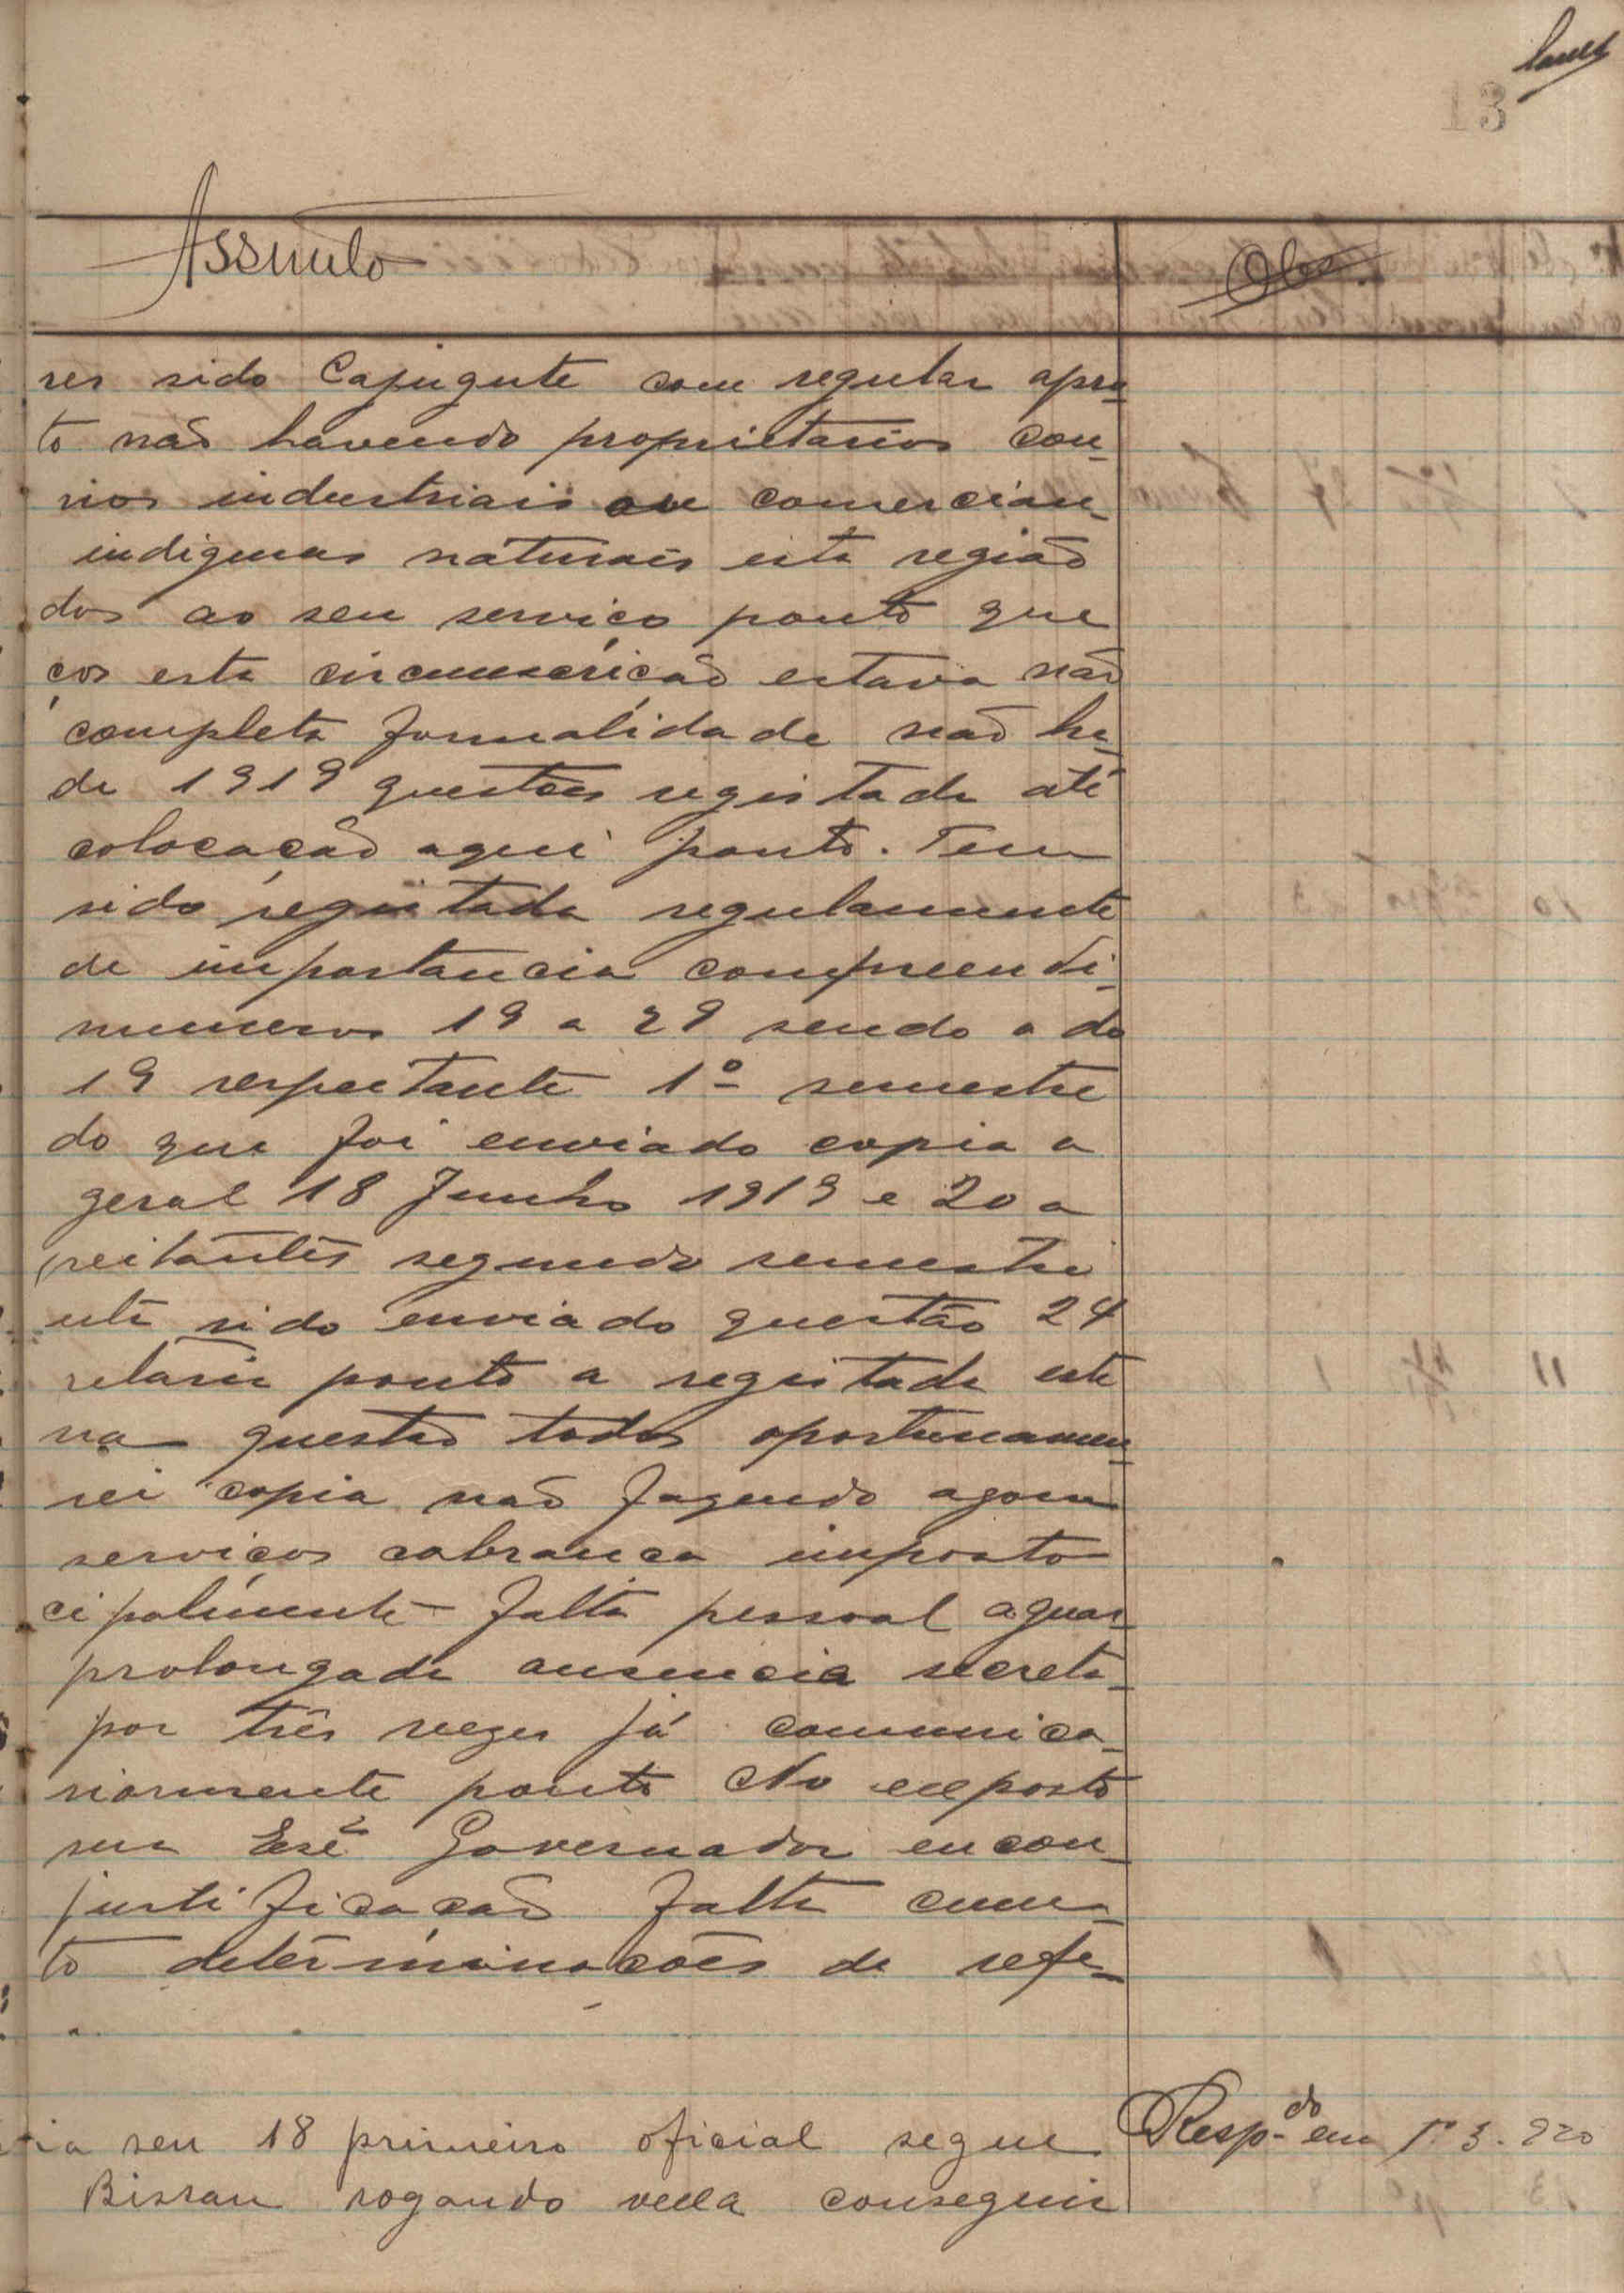 13
Assunto
Obs.
ser sido Cajugute com regular apru-
to não havendo proprietarios con-
rios industriais ou comercian-
indigenas naturais esta região
dos ao seu serviço ponto que
ços esta circumscrição estava não
completa formalidade não ha-
de 1919 questões registada até
colocação aqui ponto. Tem
sido registada regularmente
de importancia compreendi-
numeros 19 a 29 sendo a do
19 respeitante 1º semestre
do que foi enviado copia a
geral 18 Junho 1919 e 20 a
peitantes segundo semestre
sido enviado questão 24
retaria ponto a registada este
na questão todos oportunamen-
rei copia não fazendo agora
serviços cobrança imposto
cipalmente falta pessoal aguar-
prolongada ausencia secreta-
por três vezes já comunica-
riormente ponto No exposto
sua Exª Governador encon-
justificação falta cum-
to determinações de refe-
ia seu 18 primeiro oficial segue
Resp.do em 1º 3. 920
Bissau rogando vexa conseguir